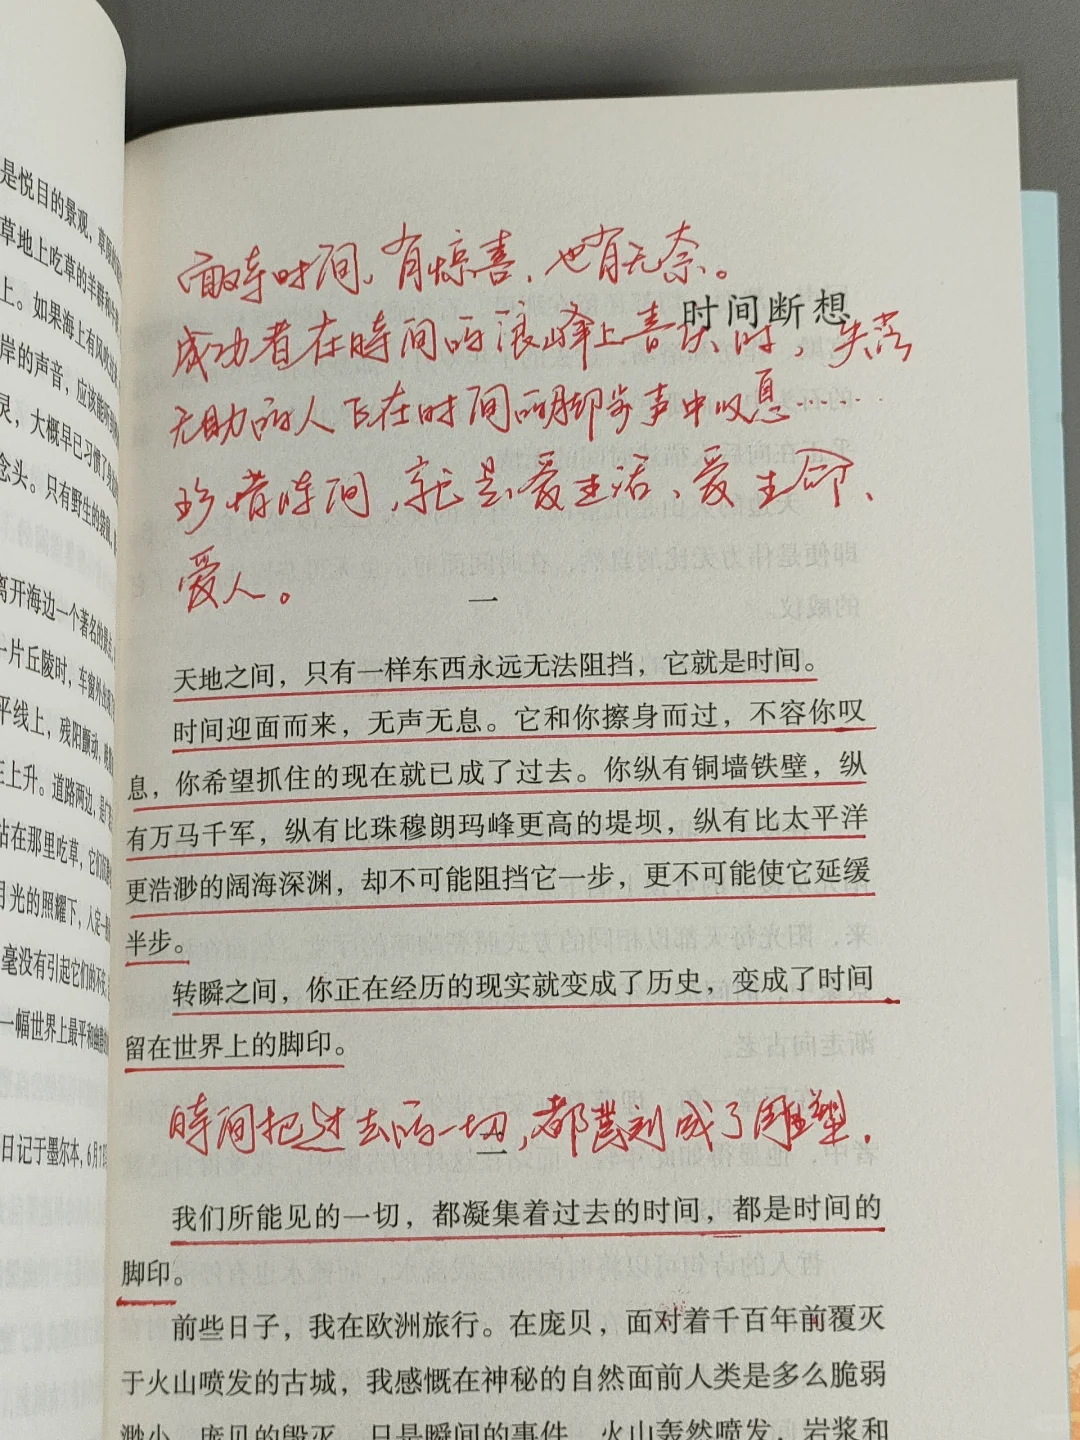 是悦目的景观，草原
草地上吃草的羊群和
上。如果海上有风吹
岸的声音，应该能听到
灵，大概早已习惯了
念头。只有野生的袋鼠，
离开海边一个著名的景点，
一片丘陵时，车窗外
平线上，残阳颤动，
在上升。道路两边，
站在那里吃草，它们
月光的照耀下，人定
毫没有引起它们的不
一幅世界上最平和幽静
日记于墨尔本，6月7
面对时间，有惊喜，也有无奈。
时间断想
成功者在時间的浪峰上喜庆时，失落
无助的人正在时间的脚步声中叹息……
珍惜时间，就是爱生活、爱生命、
爱人。
一
天地之间，只有一样东西永远无法阻挡，它就是时间。
时间迎面而来，无声无息。它和你擦身而过，不容你叹
息，你希望抓住的现在就已成了过去。你纵有铜墙铁壁，纵
有万马千军，纵有比珠穆朗玛峰更高的堤坝，纵有比太平洋
更浩渺的阔海深渊，却不可能阻挡它一步，更不可能使它延缓
半步。
转瞬之间，你正在经历的现实就变成了历史，变成了时间
留在世界上的脚印。
時间把过去的一切，都篆刻成了雕塑．
二
我们所能见的一切，都凝集着过去的时间，都是时间的
脚印。
前些日子，我在欧洲旅行。在庞贝，面对着千百年前覆灭
于火山喷发的古城，我感慨在神秘的自然面前人类是多么脆弱
渺小。庞贝的毁灭，只是瞬间的事件，火山轰然喷发，岩浆和